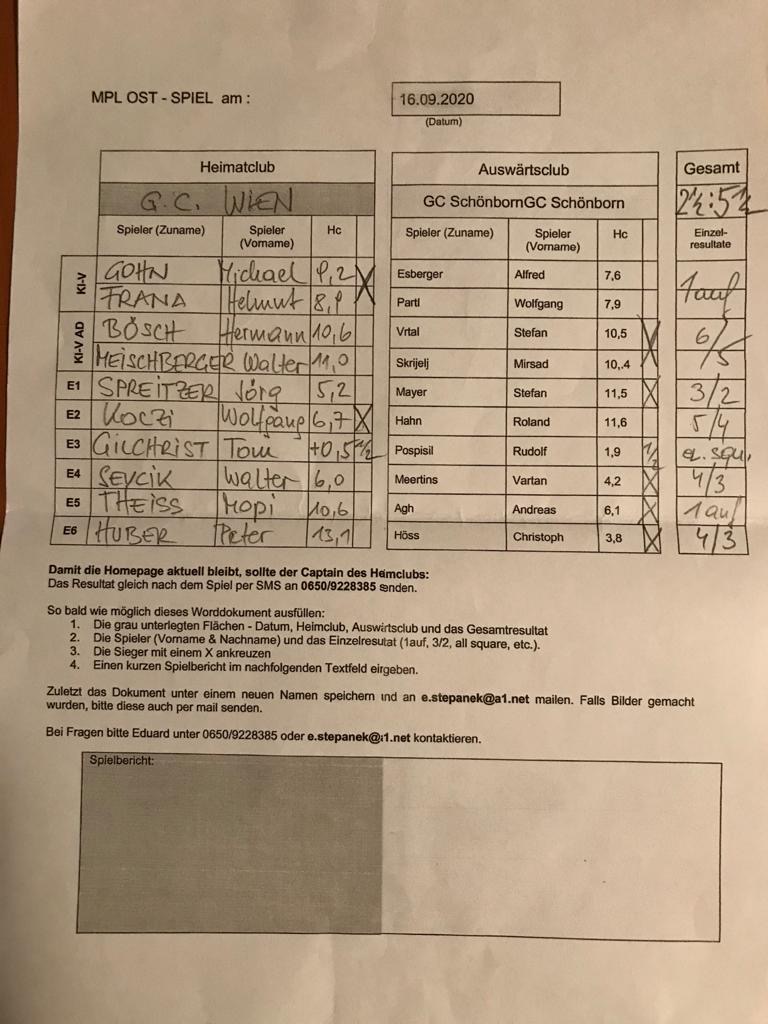 MPL OST - SPIEL am : 16.09.2020
(Datum)
Heimatclub Auswärtsclub Gesamt
G.C. WIEN GC SchönbornGC Schönborn 2½:5½
Spieler (Zuname) Spieler (Vorname) Hc Spieler (Zuname) Spieler (Vorname) Hc Einzel-resultate
KI-V GOHN Michael 9,2 X Esberger Alfred 7,6 1auf
FRANA Helmut 8,9 Partl Wolfgang 7,9
KI-V AD BÖSCH Hermann 10,6 Vrtal Stefan 10,5 X 6/5
MEISCHBERGER Walter 11,0 Skrijelj Mirsad 10,.4
E1 SPREITZER Jörg 5,2 Mayer Stefan 11,5 X 3/2
E2 KOCZI Wolfgang 6,7 X Hahn Roland 11,6 5/4
E3 GILCHRIST Tom +0,5 ½ Pospisil Rudolf 1,9 ½
E4 SEVCIK Walter 6,0 Meertins Vartan 4,2 X 4/3
E5 THEISS Mopi 10,6 Agh Andreas 6,1 X 1auf
E6 HUBER Peter 13,1 Höss Christoph 3,8 X 4/3
Damit die Homepage aktuell bleibt, sollte der Captain des Heimclubs:
Das Resultat gleich nach dem Spiel per SMS an 0650/9228385 senden.
So bald wie möglich dieses Worddokument ausfüllen:
1. Die grau unterlegten Flächen - Datum, Heimclub, Auswärtsclub und das Gesamtresultat
2. Die Spieler (Vorname & Nachname) und das Einzelresutat (1auf, 3/2, all square, etc.).
3. Die Sieger mit einem X ankreuzen
4. Einen kurzen Spielbericht im nachfolgenden Textfeld eirgeben.
Zuletzt das Dokument unter einem neuen Namen speichern und an e.stepanek@a1.net mailen. Falls Bilder gemacht
wurden, bitte diese auch per mail senden.
Bei Fragen bitte Eduard unter 0650/9228385 oder e.stepanek@a1.net kontaktieren.
Spielbericht: